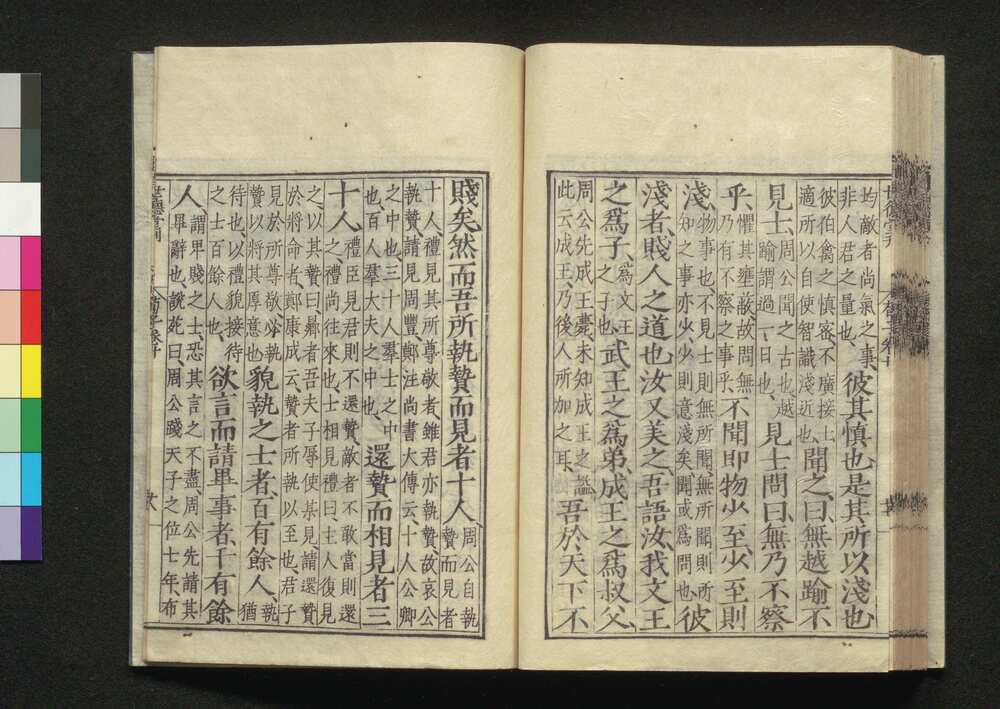 均敵者尚氣之事、彼其慎也、是其所以淺也
非人君之量也、
彼伯禽之慎密、不廣接士、
適所以自使智識淺近也、聞之、曰、無越踰不
見士、周公聞之古也、越
踰謂過一日也、見士問曰、無乃不察
乎、懼其壅蔽、故問無
乃有不察之事乎、不聞即物少至、少至則
淺、物事也、不見士則無所聞、無所聞則所
知之事亦少、少則意淺矣、聞或爲問也、彼
淺者、賤人之道也、汝又美之、吾語汝、我文王
之爲子、爲文王
之子也、武王之爲弟、成王之爲叔父、
周公先成王薨、未知成王之謚、
此云成王、乃後人所加之耳、吾於天下不
賤矣、然而吾所執贄而見者十人、周公自執
贄而見者
十人、禮見其所尊敬者、雖君亦執贄、故哀公
執贄請見周豐、鄭注尚書大傳云、十人公卿
之中也、三十人羣士之中
也、百人羣大夫之中也、還贄而相見者三
十人、禮臣見君則不還贄、敵者不敢當則還
之、禮尚往來也、士相見禮曰、主人復見
之、以其贄曰、曏者吾夫子辱使某見、請還贄
於將命者、鄭康成云、贄者所執以至也、君子
見於所尊敬、必執
贄以將其厚意也、貌執之士者、百有餘人、執猶
待也、以禮貌接待
之士百餘人也、欲言而請畢事者、千有餘
人、謂卑賤之士、恐其言之不盡、周公先請其
畢辭也、說苑曰、周公踐天子之位七年、布
荀子卷十